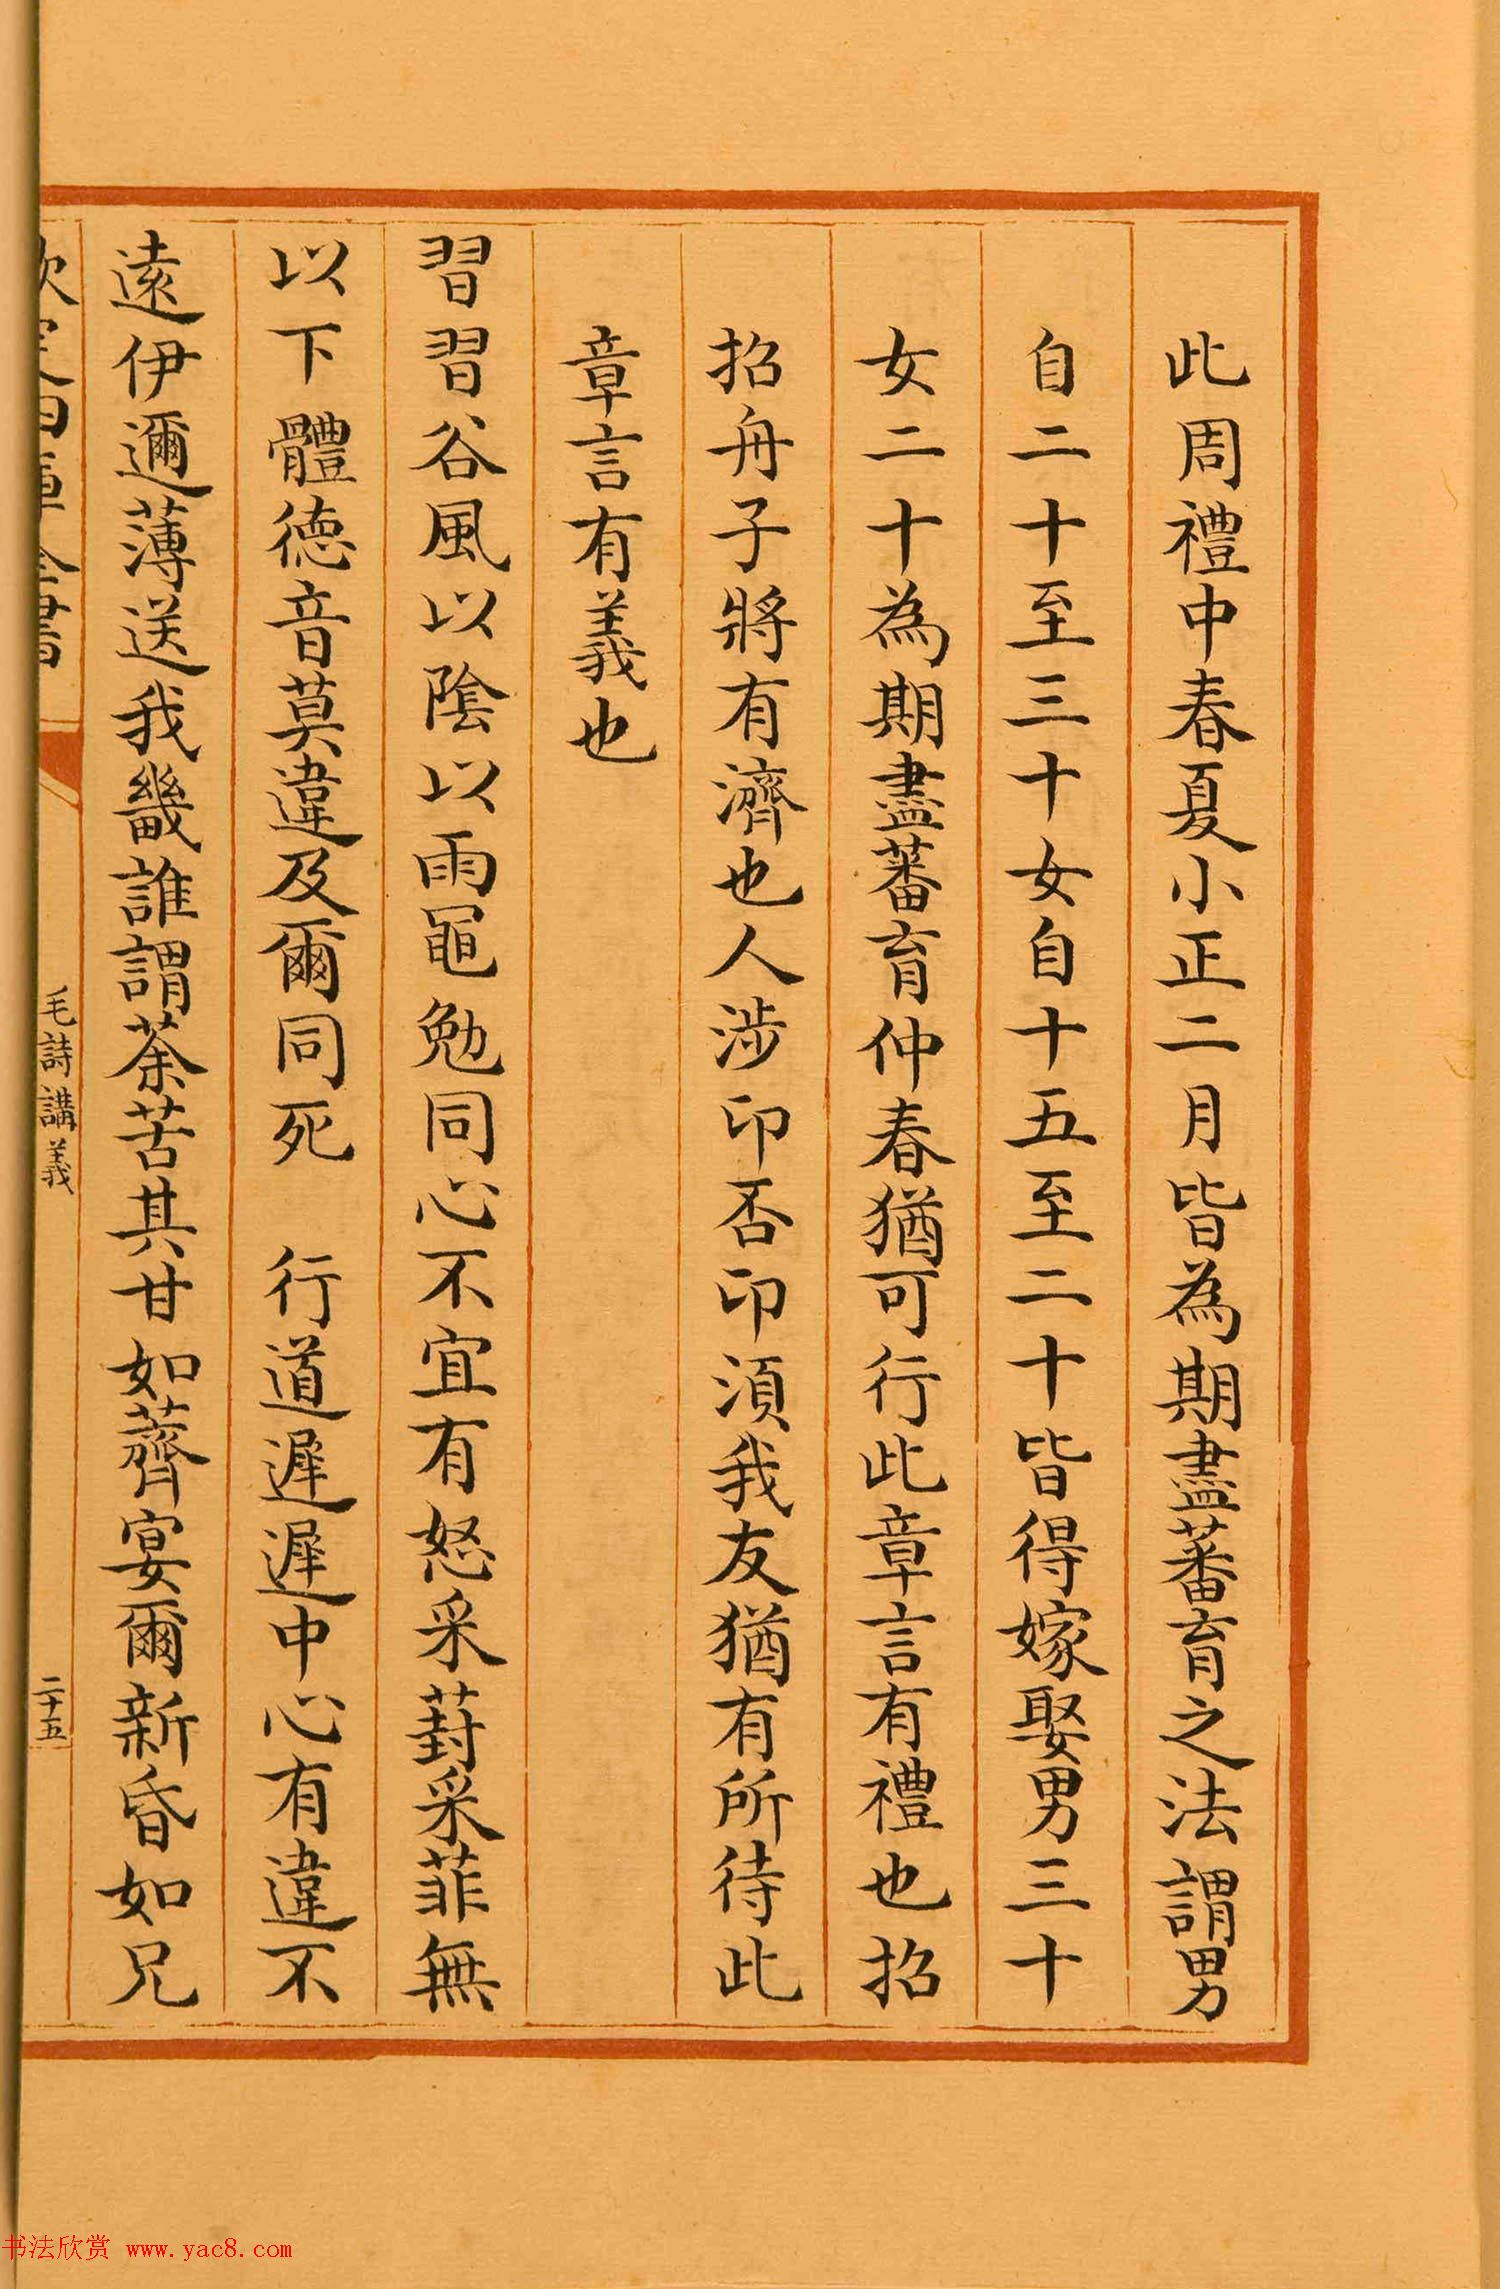 此周禮中春夏小正二月皆為期盡蕃育之法謂男
自二十至三十女自十五至二十皆得嫁娶男三十
女二十為期盡蕃育仲春猶可行此章言有禮也招
招舟子將有濟也人涉卬否卬湏我友猶有所待此
章言有義也
習習谷風以陰以雨黽勉同心不宜有怒采葑采菲無
以下體德音莫違及爾同死 行道遲遲中心有違不
遠伊邇薄送我畿誰謂荼苦其甘如薺宴爾新昏如兄
欽定四庫全書
毛詩講義
二十五
书法欣赏 www.yac8.com